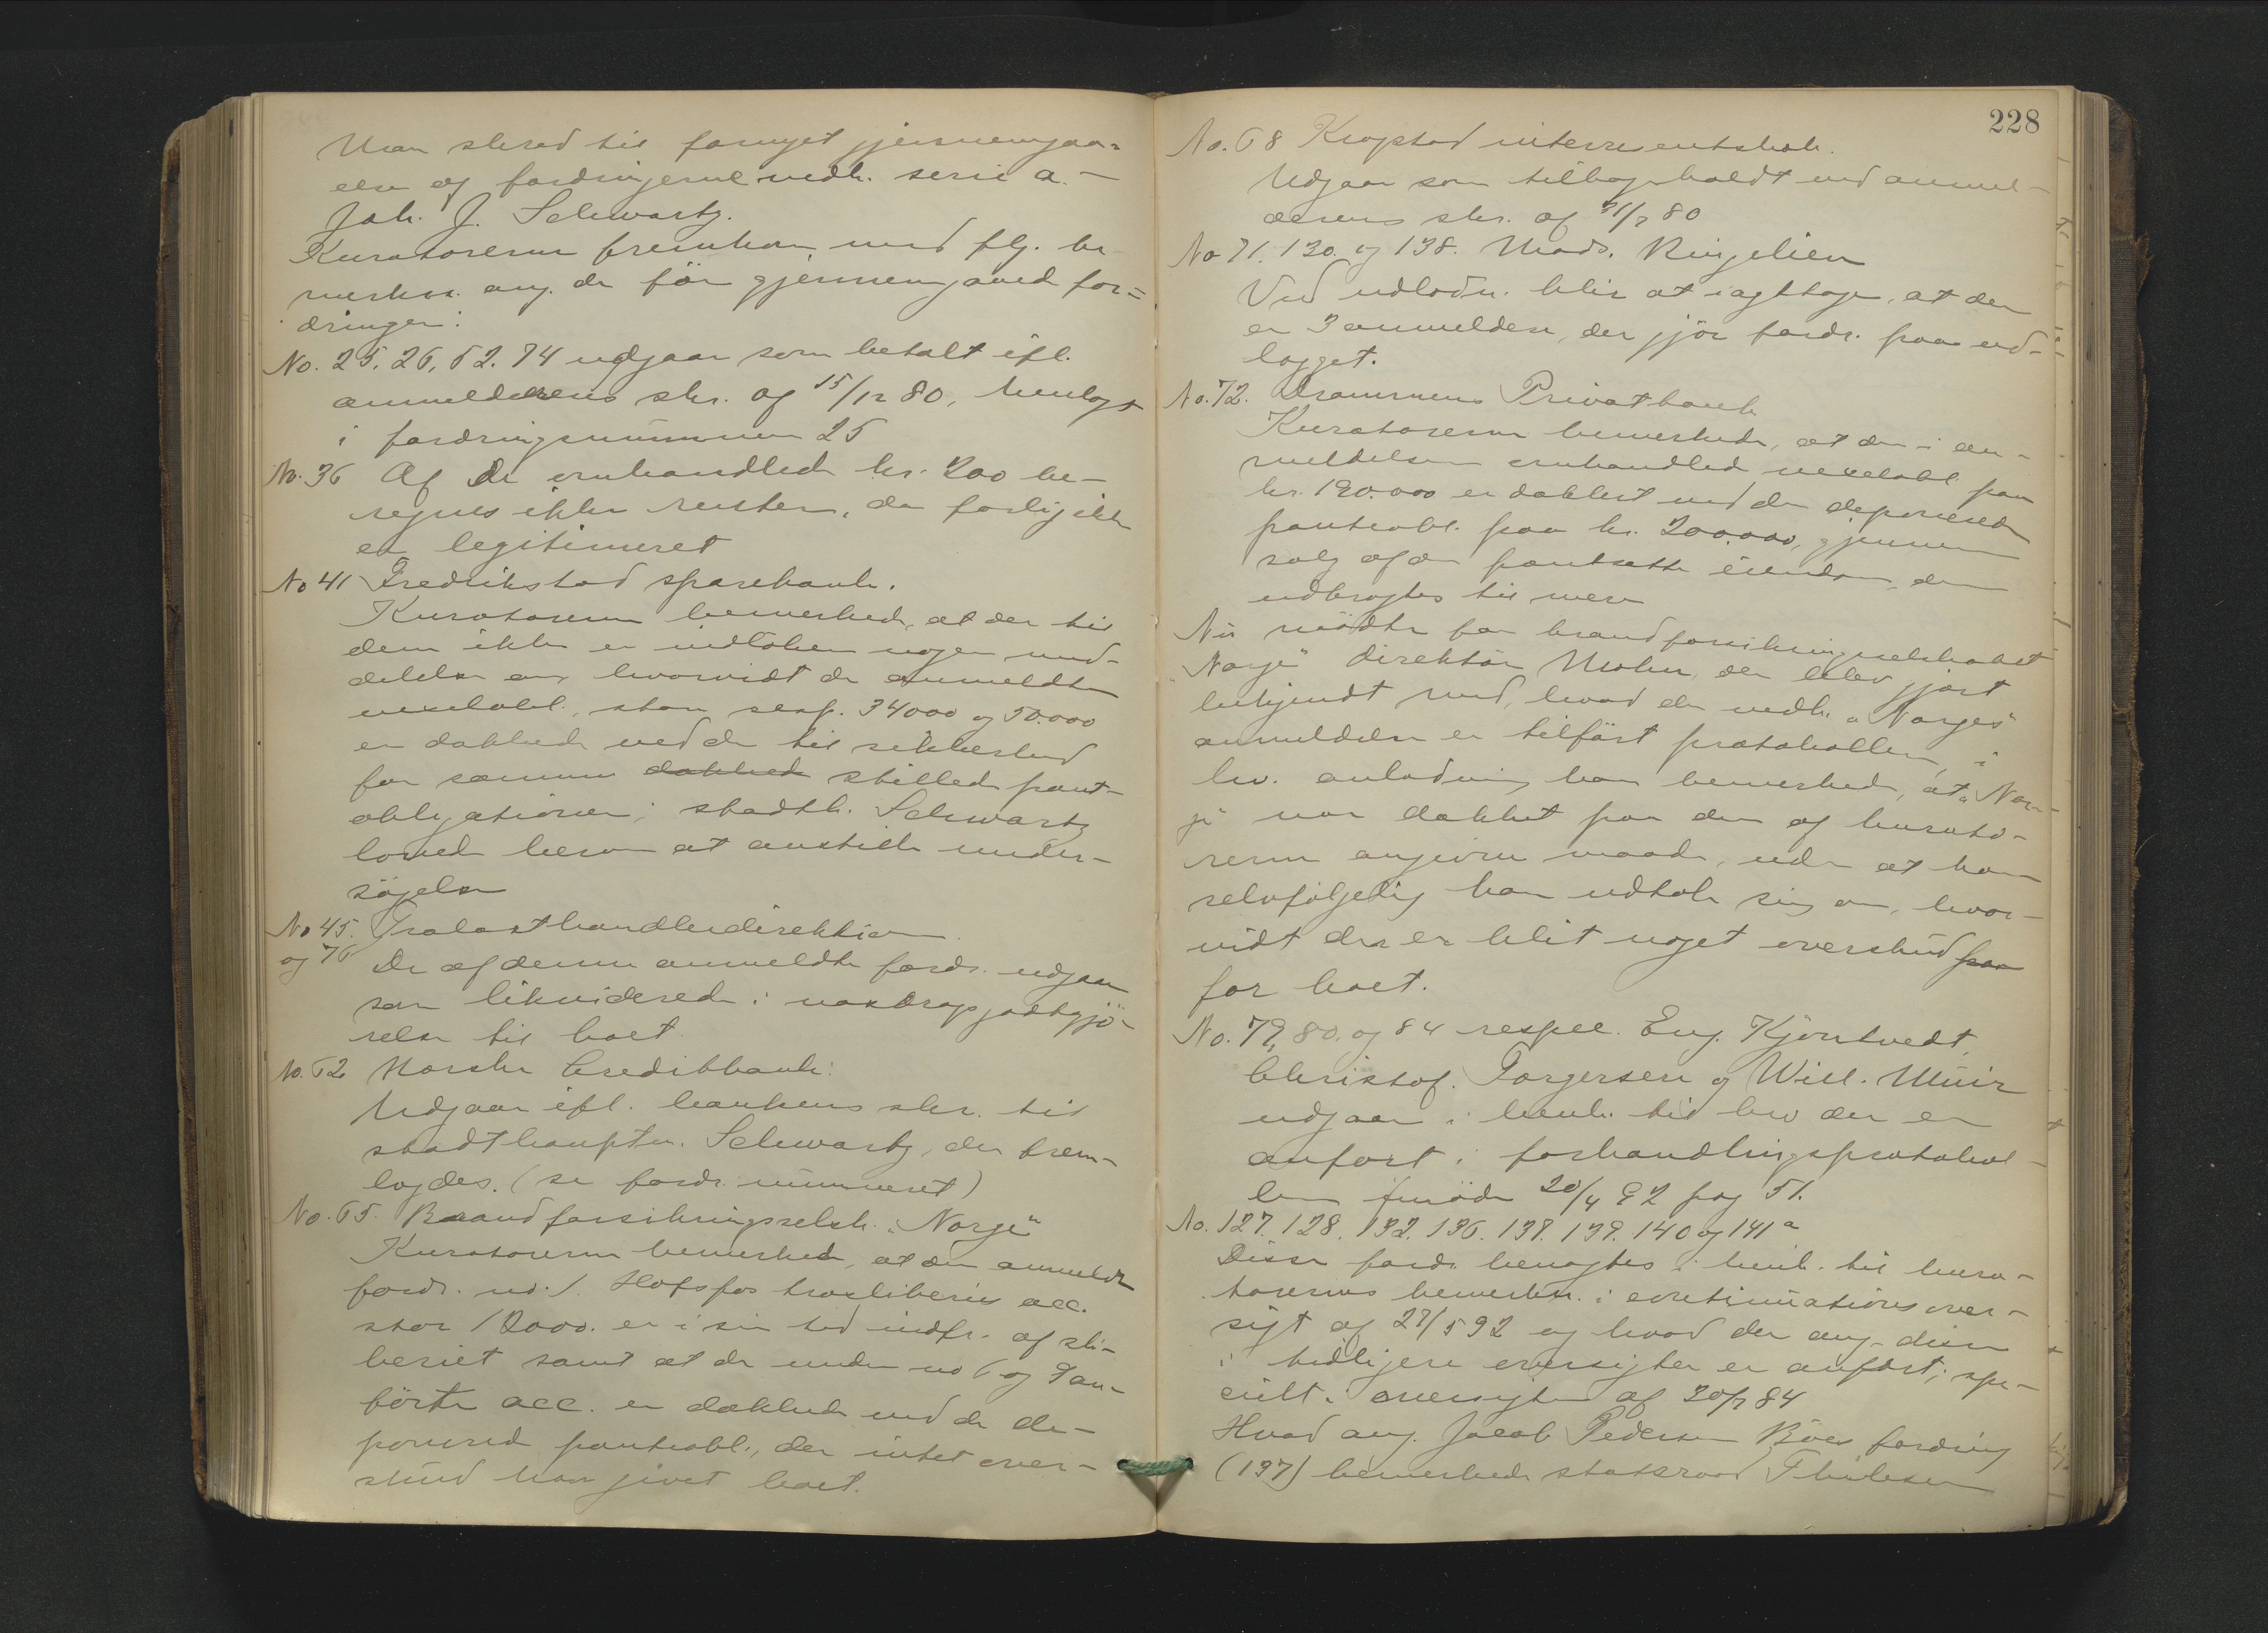 Man skred til fornyet gjennemgaa-
else af fordringerne vedk. serie a. -
Joh. J. Schwartz.
Kuratorerne fremkom med flg. be-
merkn. ang. de før gjennemgaaede for-
dringer:
No. 25, 26, 52. 74 udgaar som betalt ifl.
anmelderens skr. af 15/12 80, henlagt
i fordringsnummer 25
No. 36 Af de omhandlede kr. 200 be-
regnes ikke renter, da forlig ikke
er legitimeret
No 41 Fredrikstad sparebank.
Kuratorerne bemerkede, at der til
dem ikke er indløben nogen med-
delelse om, hvorvidt de anmeldte
vexelobl., stor resp. 34000 og 50.000
er dækkede ved de til sikkerhed
for samme dækkede stillede pant-
obligationer; stadth. Schwartz
lovede herom at anstille under-
søgelse
No 45. Trælasthandlerdirektion
og 76 De af denne anmeldte fordr. udgaar
som likviderede i vasdragsgodtgjø-
relse til boet
No. 62 Norske Creditbank:
Udgaar ifl. bankens skr. til
stadthauptm. Schwartz, der frem-
lagdes. (se fordr. nummeret)
No. 65. Brandforsikringsselsk. "Norge"
Kuratorerne bemerkede, at den anmeldte
fordr. no: 1. Hofsfos træsliberis acc.
stor 12000. er i sin tid indfr. af sli-
beriet samt at de under no 6 og 9 an-
førte acc. er dækkede ved de de-
ponerede panteobl., der intet over-
skud har givet boet.
228
No. 68 Krogstad interessentskab.
Udgaar som tilbageholdt ved anmel-
derens skr. af 31/7 80
No 71. 130. og 138. Mads. Ringelien
Ved udlodn. blir at iagttage, at der
er 3 anmeldere, der gjør fordr. paa ud-
lægget.
No. 72. Drammens Privatbank
Kuratorerne bemerkede, at den i an-
meldelsen omhandlede vexelobl. paa
kr. 120.000 er dækket ved den deponerede
panteobl. paa kr. 200.000, gjennem
salg af den pantsatte eiendom, der
udbragtes til mere
Nu mødte for brandforsikringsselskabet
"Norge" direktør Mohn, der blev gjort
bekjendt med, hvad der vedk. "Norges"
anmeldelse er tilført protokollen, i
hv. anledning han bemerkede, at "Nor-
ge" var dækket paa den af kurato-
rerne angivne maade, uden at han
selvfølgelig kan udtale sig om, hvor-
vidt der er blit noget overskud paa
for boet.
No. 79, 80. og 84 respec. Eng. Kjøntvedt,
Christof. Torgersen og Will. Muir
udgaar i henh. til hv. der er
anført i forhandlingsprotokol-
len i møde 20/4 92 pag 51.
No. 127. 128. 132. 136. 138. 139. 140 og 141 a
Disse fordr. benegtes i henh. til kura-
torernes bemerkn. i continuationsover-
sigt af 27/5 92 og hvad der ang. disse
i tidligere oversigter er anført; spe-
cielt i oversigten af 30/7 84
Hvad ang. Jacob Pedersen Bøes fordring
(137) bemerkede statsraad Thilesen